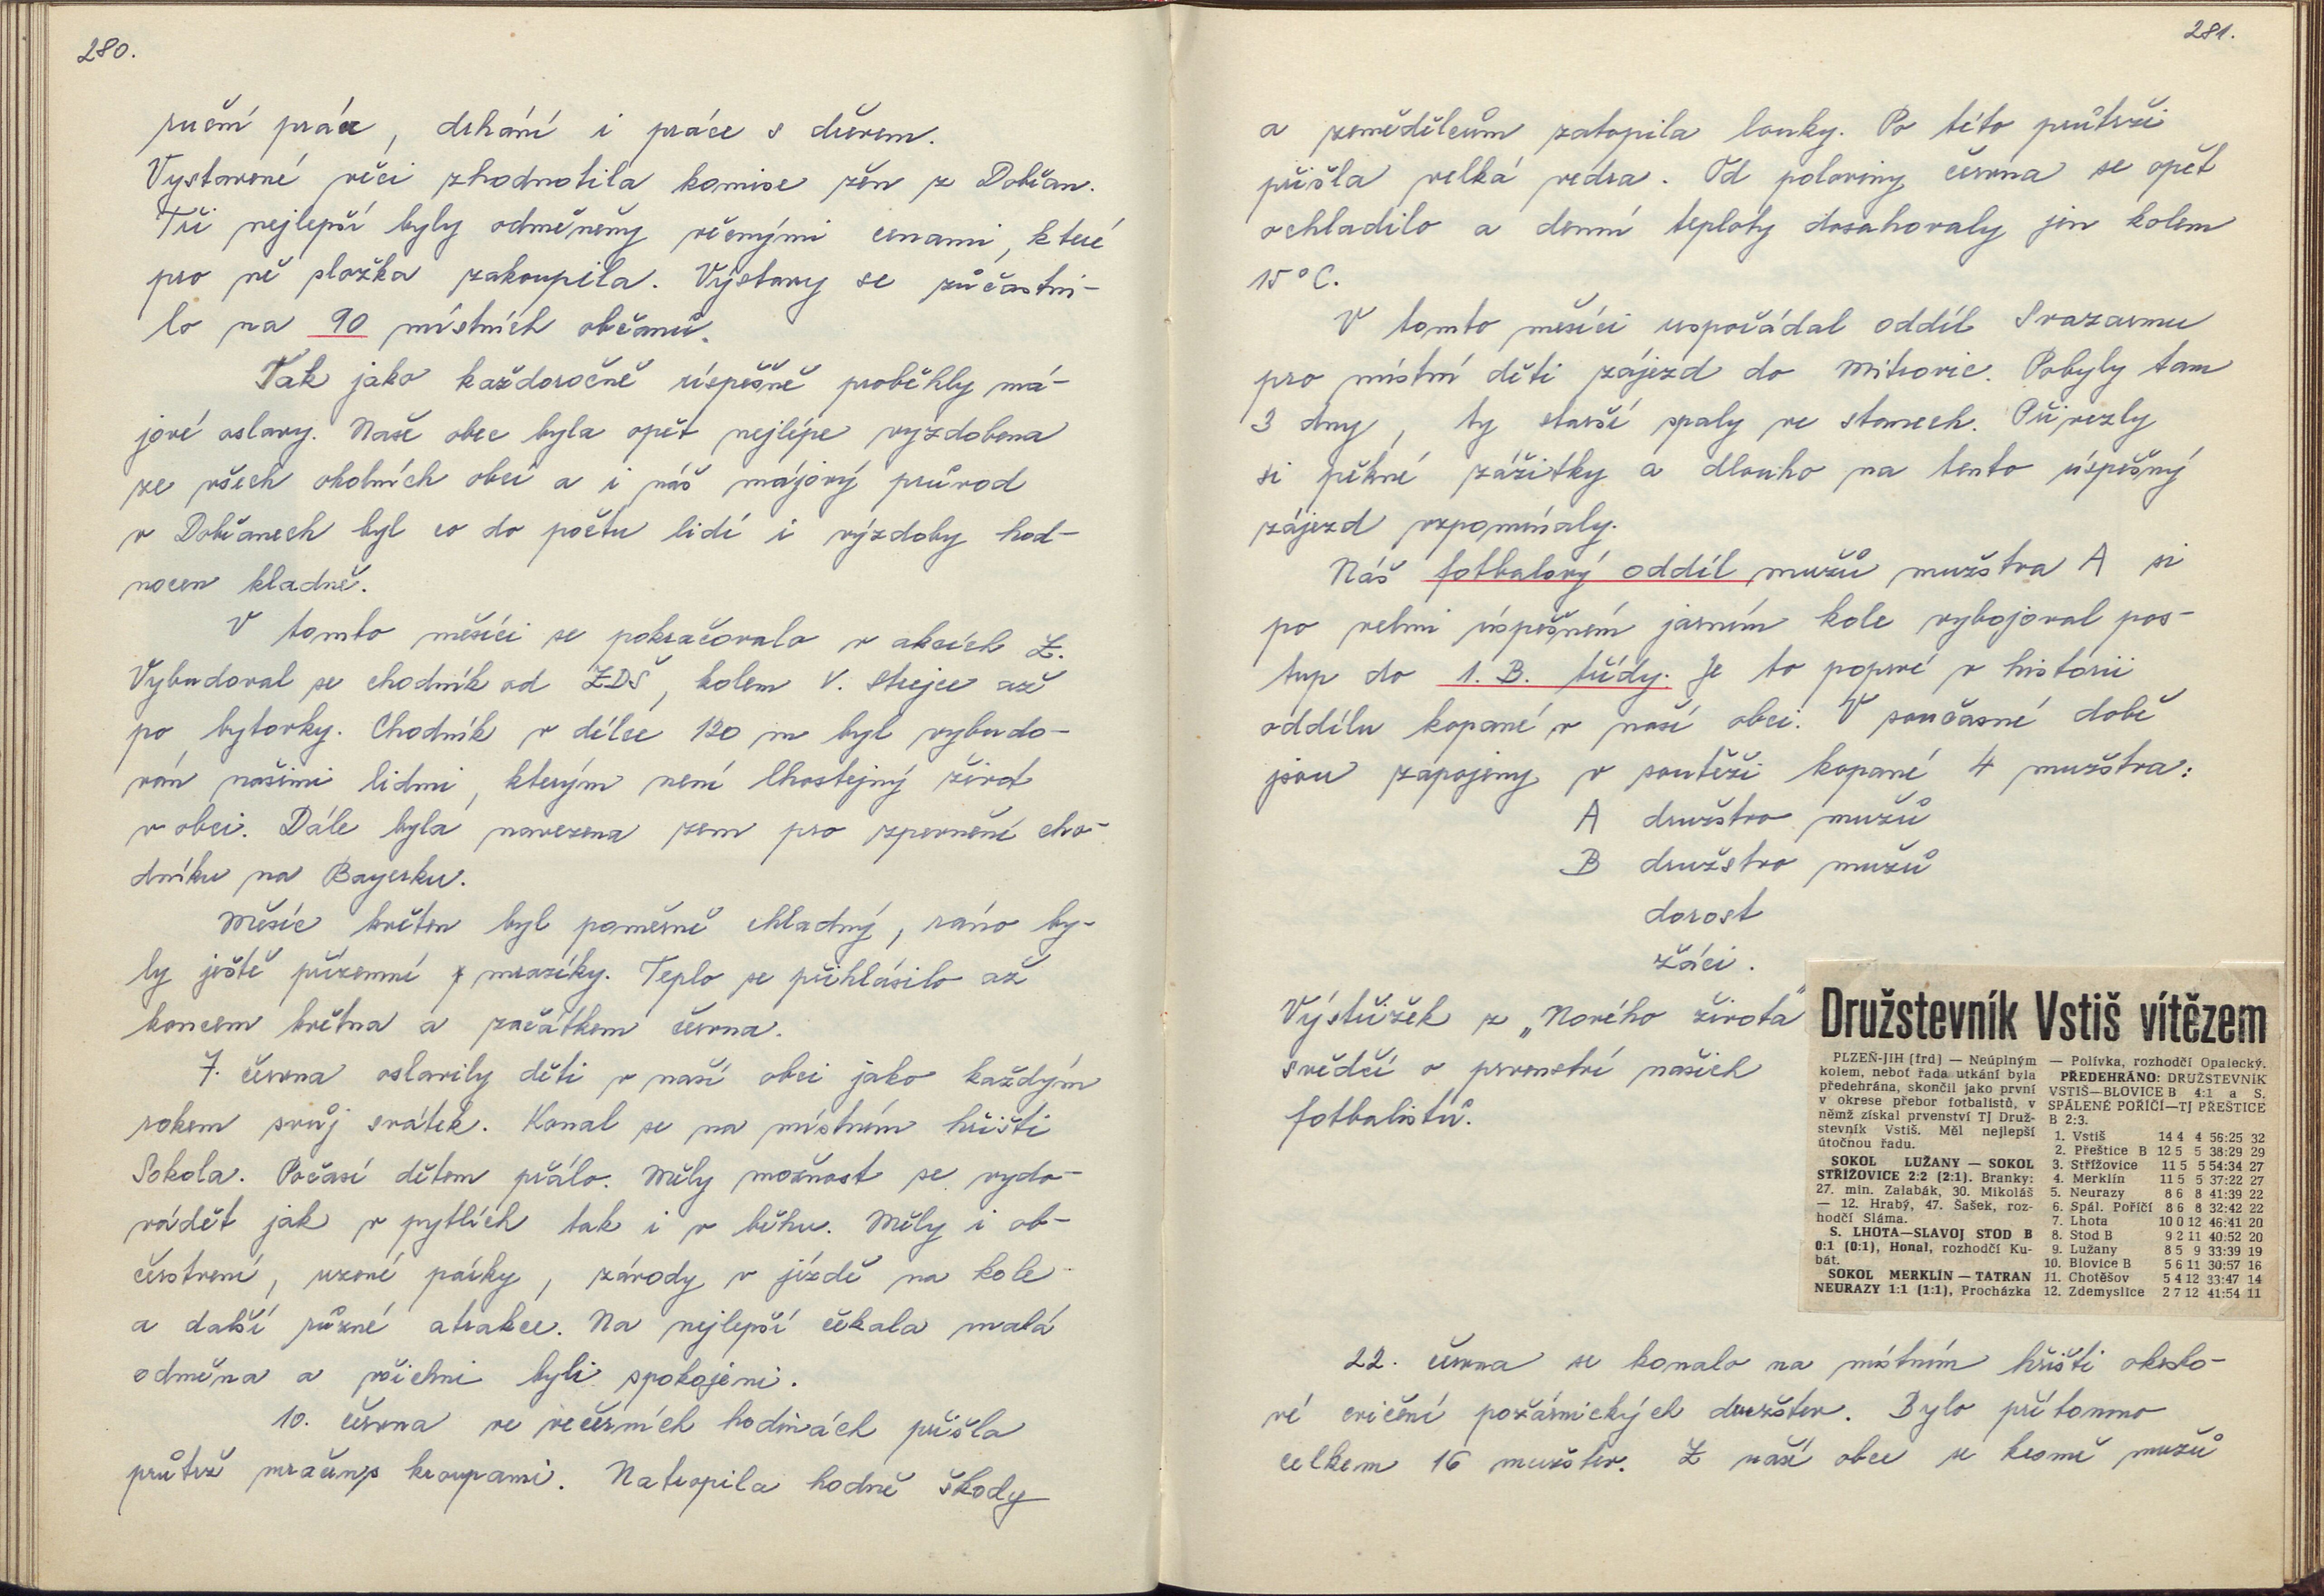 280.
ruční práce, drhání i práce s dřevem.
Vystavené věci zhodnotila komise žen z Dobřan.
Tři nejlepší byly odměněny věcnými cenami, které
pro ně složka zakoupila. Výstavy se zůčastni-
lo na 90 místních občanů.
Tak jako každoročně úspěšně proběhly má-
jové oslavy. Naše obec byla opět nejlépe vyzdobena
ze všech okolních obcí a i náš májový průvod
v Dobřanech byl co do počtu lidí i výzdoby hod-
nocen kladně.
V tomto měsíci se pokračovalo v akcích Z.
Vybudoval se chodník od ZDŠ, kolem V. Strejce až
po bytovky. Chodník v délce 120 m byl vybudo-
ván našimi lidmi, kterým není lhostejný život
v obci. Dále byla navezena zem pro zpevnění cho-
dníku na Bayerku.
Měsíc květen byl poměrně chladný, ráno by-
ly ještě přízemní mrazíky. Teplo se přihlásilo až
koncem května a začátkem června.
7. června oslavily děti v naší obci jako každým
rokem svůj svátek. Konal se na místním hřišti
Sokola. Počasí dětem přálo. Měly možnost se vydo-
vádět jak v pytlích tak i v běhu. Měly i ob-
čerstvení, uzené párky, závody v jízdě na kole
a další různé atrakce. Na nejlepší čekala malá
odměna a všichni byli spokojeni.
10. června ve večerních hodinách přišla
průtrž mračen s kroupami. Natropila hodně škody
281.
a zemědělcům zatopila louky. Po této průtrži
přišla velká vedra. Od poloviny června se opět
ochladilo a denní teploty dosahovaly jen kolem
15°C.
V tomto měsíci uspořádal oddíl Svazarmu
pro místní děti zájezd do Mítrovic. Pobyly tam
3 dny, ty starší spaly ve stanech. Přivezly
si pěkné zážitky a dlouho na tento úspěšný
zájezd vzpomínaly.
Náš fotbalový oddíl mužů mužstva A si
po velmi úspěšném jarním kole vybojoval pos-
tup do 1. B. třídy. Je to poprvé v historii
oddílu kopané v naší obci. V současné době
jsou zapojeny v soutěži kopané 4 mužstva:
A družstvo mužů
B družstvo mužů
dorost
žáci.
Výstřižek z „Nového života"
svědčí o prvenství našich
fotbalistů.
Družstevník Vstiš vítězem
PLZEŇ-JIH (frd) — Neúplným
kolem, neboť řada utkání byla
předehrána, skončil jako první
v okrese přebor fotbalistů, v
němž získal prvenství TJ Druž-
stevník Vstiš. Měl nejlepší
útočnou řadu.
SOKOL LUŽANY — SOKOL
STŘÍŽOVICE 2:2 (2:1). Branky:
27. min. Zalabák, 30. Mikoláš
— 12. Hrabý, 47. Šašek, roz-
hodčí Sláma.
S. LHOTA—SLAVOJ STOD B
0:1 (0:1), Honal, rozhodčí Ku-
bát.
SOKOL MERKLÍN — TATRAN
NEURAZY 1:1 (1:1), Procházka
— Polívka, rozhodčí Opalecký.
PŘEDEHRÁNO: DRUŽSTEVNÍK
VSTIŠ—BLOVICE B 4:1 a S.
SPÁLENÉ POŘÍČÍ—TJ PŘEŠTICE
B 2:3.
1. Vstiš 14 4 4 56:25 32
2. Přeštice B 12 5 5 38:29 29
3. Střížovice 11 5 5 54:34 27
4. Merklín 11 5 5 37:22 27
5. Neurazy 8 6 8 41:39 22
6. Spál. Poříčí 8 6 8 32:42 22
7. Lhota 10 0 12 46:41 20
8. Stod B 9 2 11 40:52 20
9. Lužany 8 5 9 33:39 19
10. Blovice B 5 6 11 30:57 16
11. Chotěšov 5 4 12 33:47 14
12. Zdemyslice 2 7 12 41:54 11
22. června se konalo na místním hřišti okrsko-
vé cvičení požárnických družstev. Bylo přítomno
celkem 16 mužstev. Z naší obce se kromě mužů